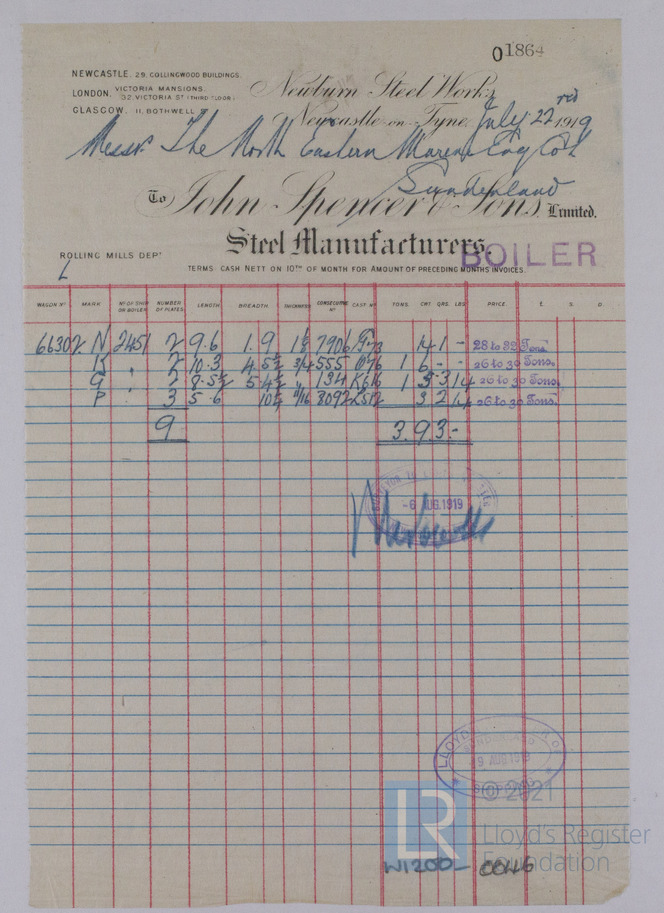 01864
NEWCASTLE, 29, COLLINGWOOD BUILDINGS.
LONDON, VICTORIA MANSIONS, 32, VICTORIA ST (THIRD FLOOR)
GLASGOW, 11, BOTHWELL
Newburn Steel Works
Newcastle-on-Tyne, July 22nd 1919
Messrs The North Eastern Marine Eng Co Ltd
Sunderland
To John Spencer & Sons, Limited.
Steel Manufacturers.
BOILER
ROLLING MILLS DEPT
TERMS CASH NETT ON 10TH OF MONTH FOR AMOUNT OF PRECEDING MONTHS INVOICES.
WAGON No MARK No OF SHIP OR BOILER NUMBER OF PLATES LENGTH BREADTH THICKNESS CONSECUTIVE No CAST No TONS. CWT QRS. LBS PRICE £ S. D.
66302 N 2451 2 9.6 1.9 7906 14 1 - 28 to 32 Tons.
2 10.3 4.5½ 3/4 555 1 6 - - 26 to 30 Tons.
2 8.5½ 5.4½ " 134 1 5 3 14 26 to 30 Tons.
P 3 5.6 10½ 11/16 8092 3 2 14 26 to 30 Tons.
9 3.9.3.-
SURVEYOR TO
-6 AUG.1919
LLOYD'S
SUNDERLAND
9 AUG 1919
© 2021
LR
Lloyd's Register
Foundation
W1200- 0046